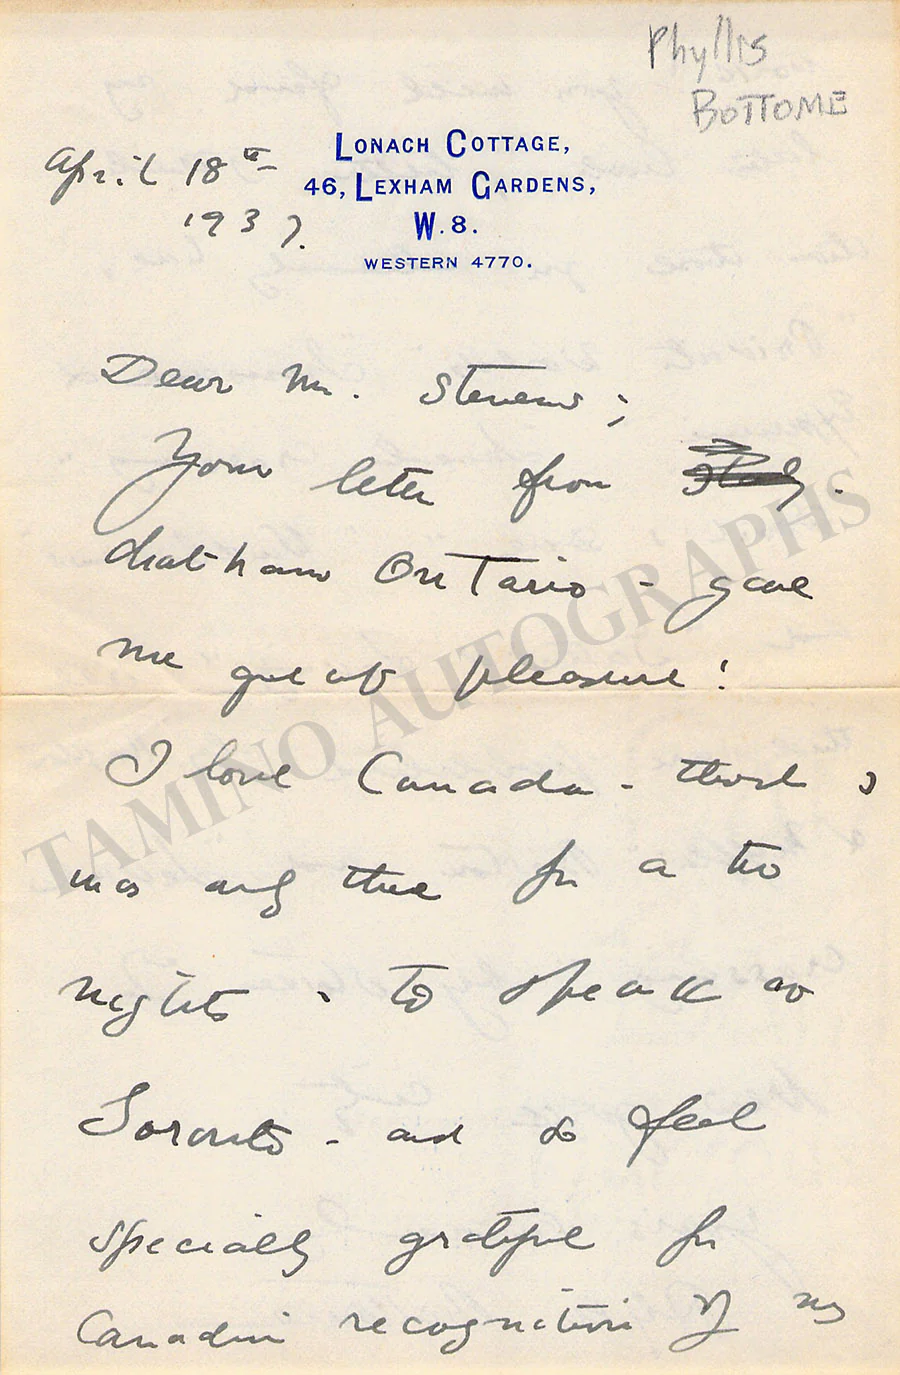 Phyllis
BOTTOME
LONACH COTTAGE,
46, LEXHAM GARDENS,
W.8.
WESTERN 4770.
April 18th
1937.
Dear Mr. Stevens;
Your letter from
Chatham Ontario - gave
me great pleasure!
I love Canada - though I
was only there for a two
nights - to speak at
Toronto - and so feel
specially grateful for
Canadian recognition of my
TAMINO AUTOGRAPHS